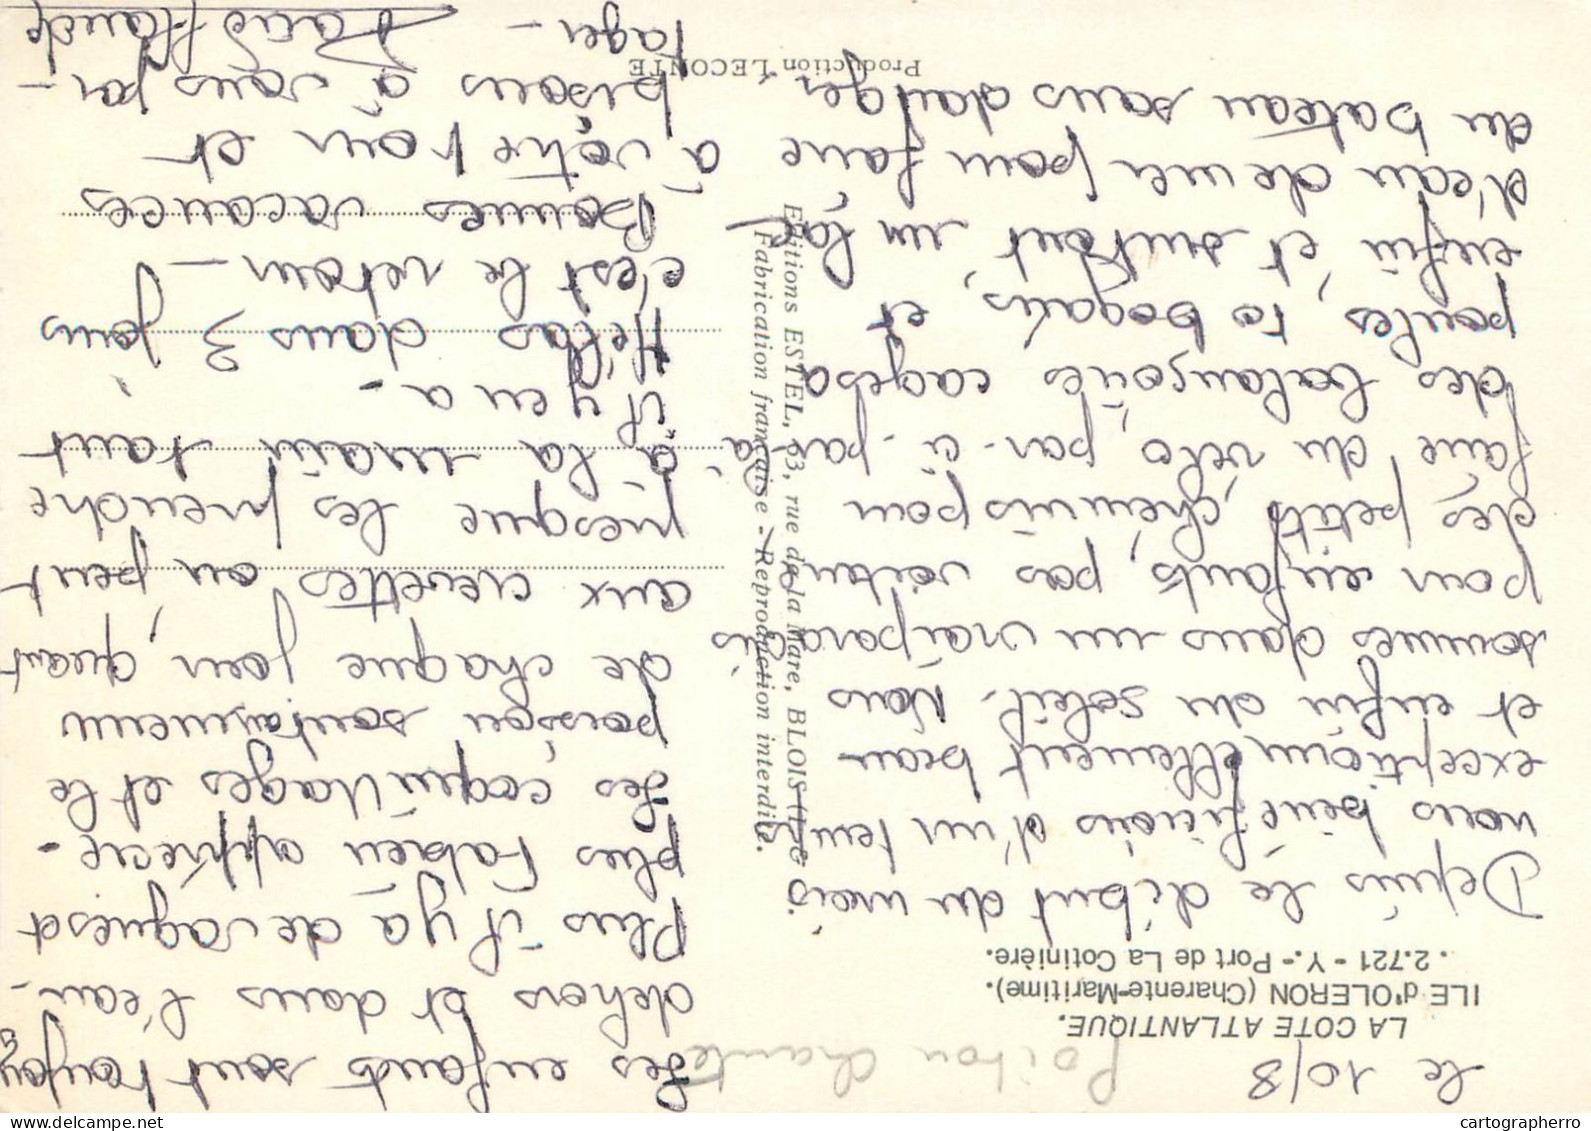 Le 10/8
Poitou Charente
LA COTE ATLANTIQUE.
ILE d'OLERON (Charente-Maritime).
. 2.721 - Y. - Port de La Cotinière.
Depuis le début du mois
nous bénéficions d'un temps
exceptionnellement beau
et enfin du soleil. Nous
sommes dans un vrai paradis
pour enfants, pas voitures
des petits chemins pour
faire du vélo, par-ci - par-là
des balançoires cages a
poules, toboggans, et
enfin, et surtout un lac
d'eau de mer pour faire
du bateau sans danger.
Production LECONTE
Editions ESTEL, 63, rue de la Mare, BLOIS
Fabrication française - Reproduction interdite.
Les enfants sont toujours
dehors et dans l'eau -
Plus il y a de vagues et
plus Fabien apprécie -
Les coquillages et le
poisson sont au menu
de chaque jour quant
aux crevettes on peut
presque les prendre
à la main tant
il y en a -
Hélas dans 3 jours
c'est le retour -
Bonnes vacances
à votre tour et
bisous à vous par-
tager -